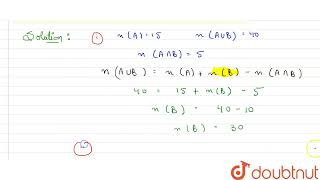 Solution : ① n(A)=15 n(A∪B) = 40
n (A∩B) = 5
n (A∪B) = n(A) + n(B) - n(A∩B)
40 = 15 + n(B) - 5
n (B) = 40 - 10
n(B) = 30
doubtnut